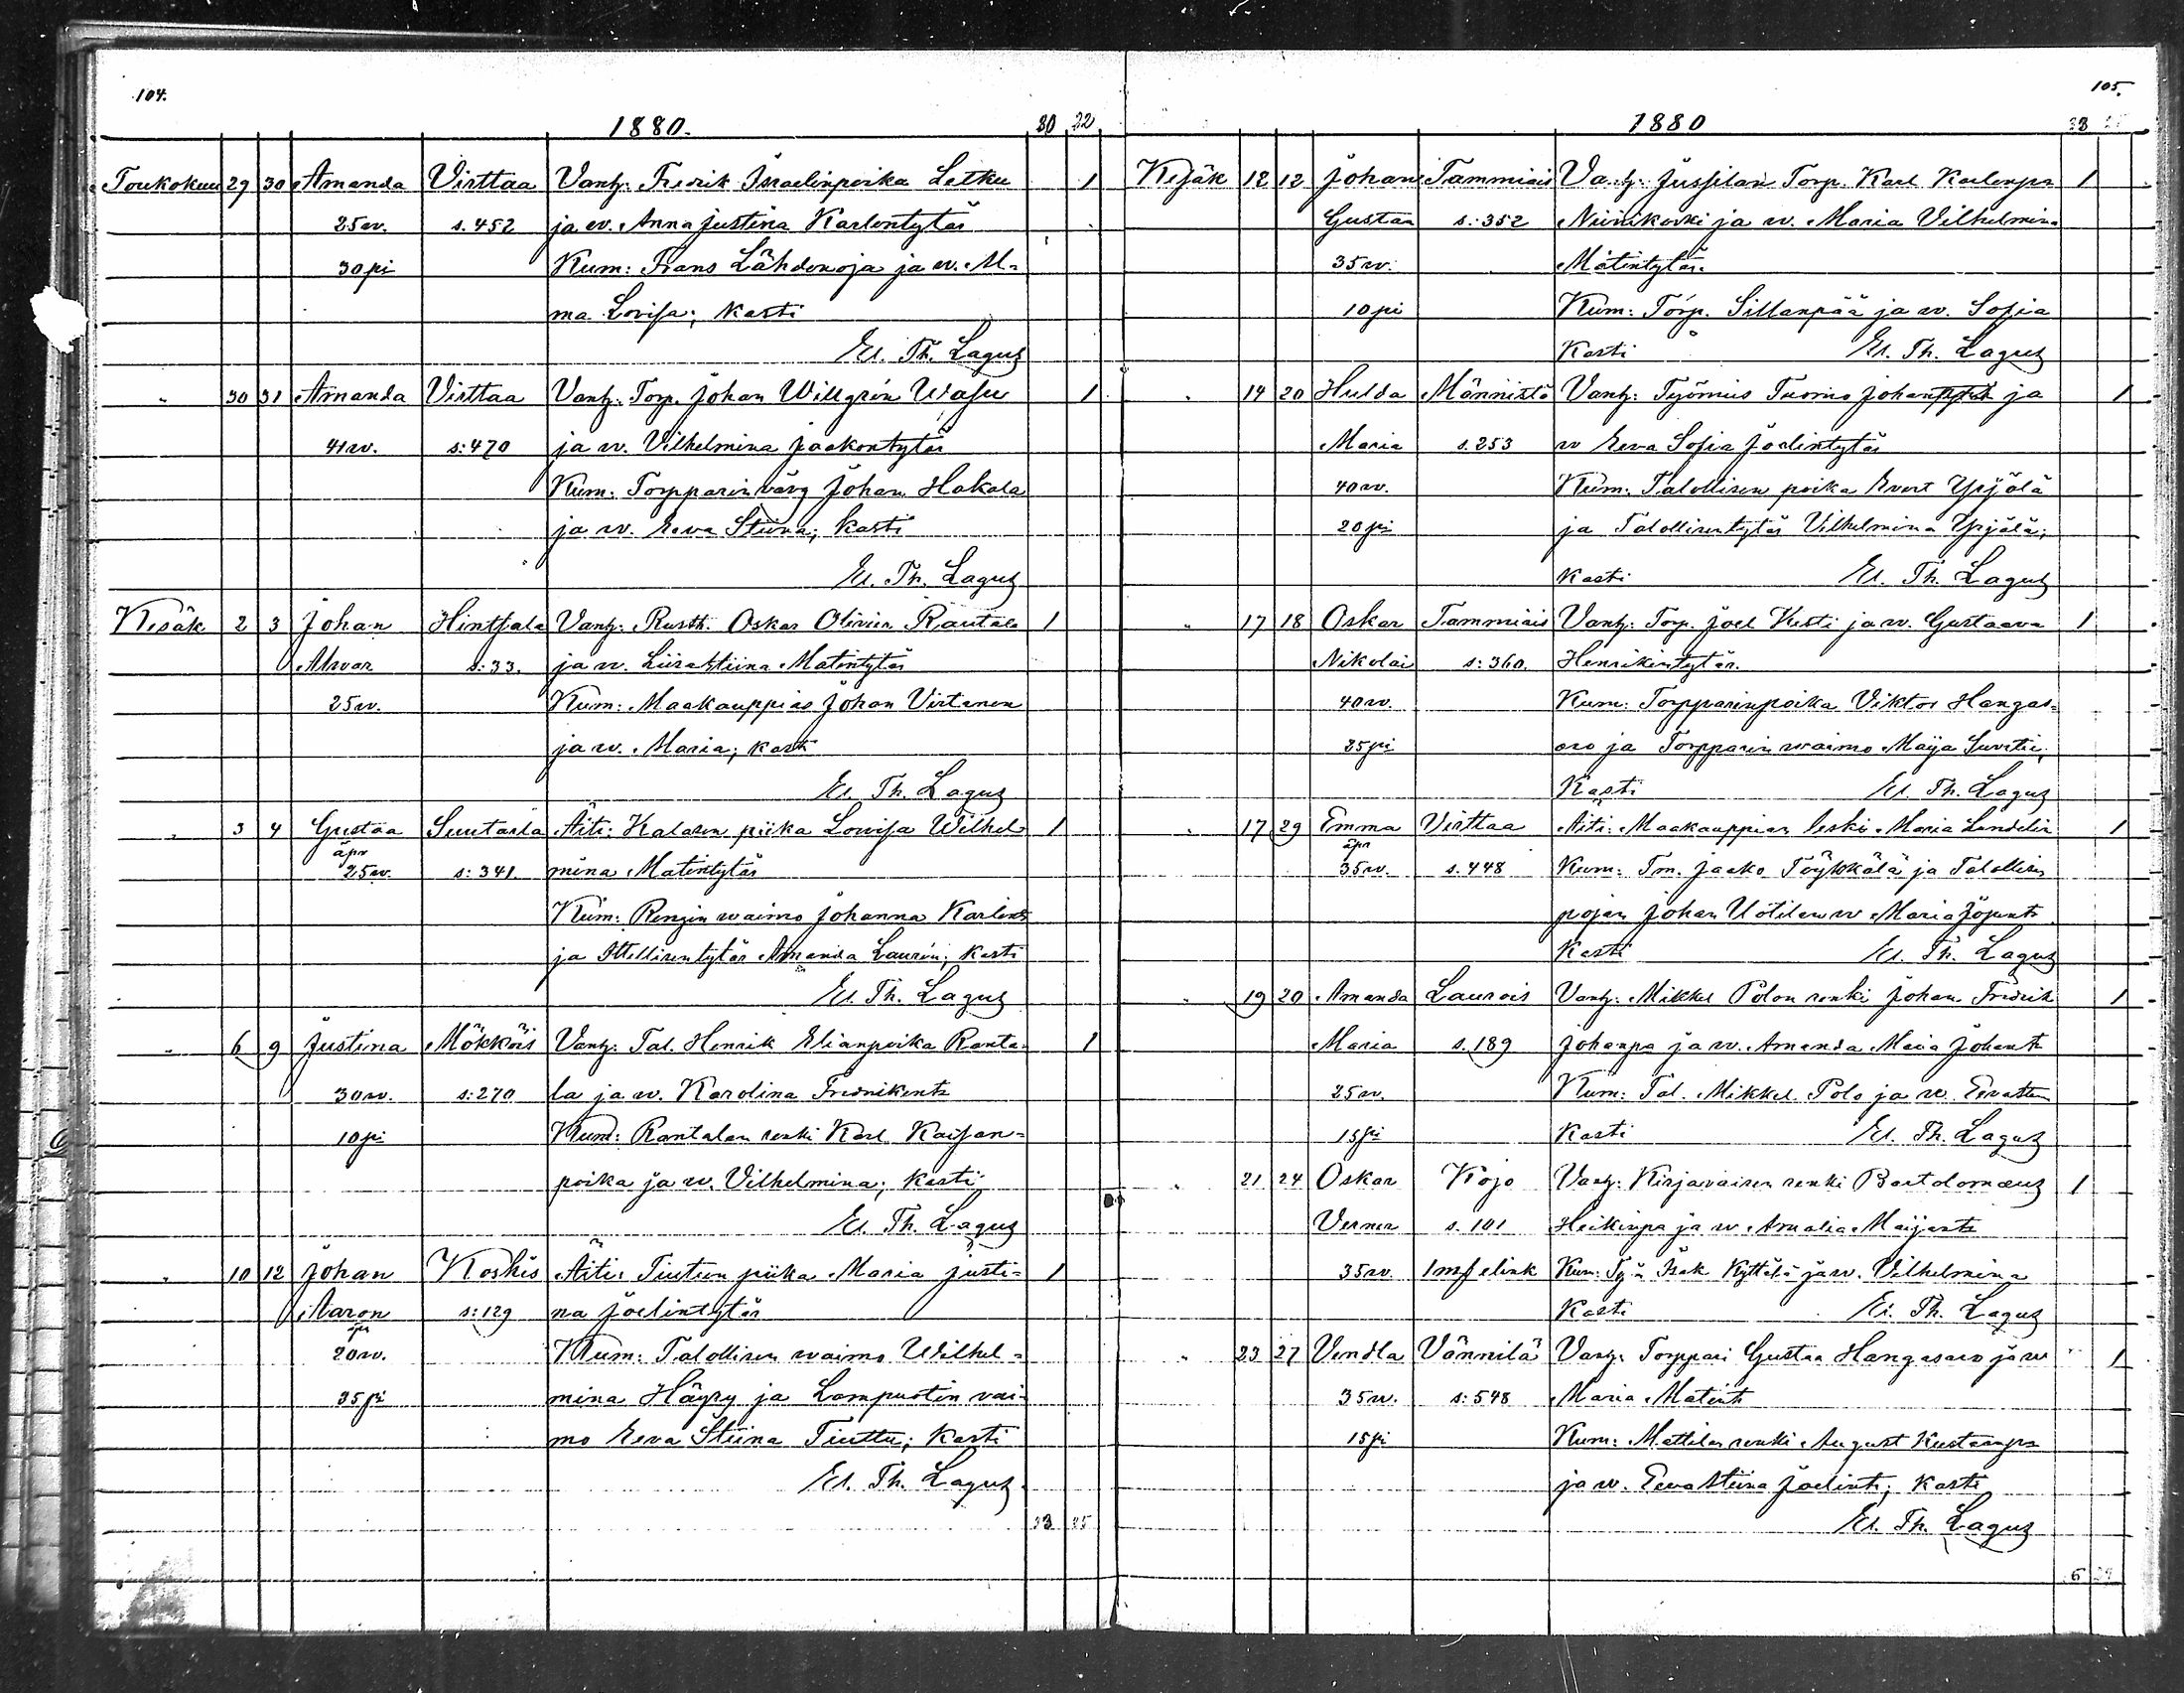 104.
1880. 30 32
Toukokuu 29 30 Amanda Virttaa Vanh: Fredrik Israelinpoika Letku 1
25 w. s. 452 ja w. Anna Justina Karlentytär
30 pi Kum: Frans Lähdenoja ja w. Al=
ma Lovisa; kasti
El. Th. Lagus
" 30 31 Amanda Virttaa Vanh: Torp. Johan Willgrén Wasu 1
41 w. s: 470 ja w. Vilhelmina Jaakontytär
Kum: Torpparin vävy Johan Hakala
ja w. Eeva Stiina; kasti
El. Th. Lagus
Kesäk 2 3 Johan Hintsala Vanh: Rusth. Oskar Olivier Rautala 1
Alvar s: 33. ja w. Liisa Stiina Matintytär
25 w. Kum: Maakauppias Johan Virtanen
ja w. Maria; kasti
El. Th. Lagus
" 3 4 Gustaa Suutarla Äiti: Kalaren piika Lovisa Wilhel 1
äpr
25 w. s: 341. mina Matintytär
Kum: Rengin waimo Johanna Karlent
ja Itellisentytär Amanda Laurén; kasti
El. Th. Lagus
" 6 9 Justina Mökköis Vanh: Tal. Henrik Elianpoika Ranta= 1
30 w. s: 270 la ja w. Karolina Fredrikent:
10 pi Kum: Rantalan renki Karl Kaisan=
poika ja w. Vilhelmina; kasti
El. Th. Lagus
" 10 12 Johan Koskis Äiti: Tiutun piika Maria Justi= 1
Aaron s: 129 na Joelintytär
äpr
20 w. Kum: Talollisen waimo Wilhel=
35 pi mina Häyry ja Lampuotin vai=
mo Eeva Stiina Tiuttu; Kasti
El. Th. Lagus
33 35
105.
1880 33 35
Kesäk 12 12 Johan Tammiais Vanh: Jussilan Torp. Karl Karlenpa 1
Gustaa s: 352 Niinikoski ja w. Maria Vilhelmina
35 w. Matintytär.
10 pi Kum: Torp. Sillanpää ja w. Sofia
Kasti El. Th. Lagus
" 14 20 Hulda Männistö Vanh: Työmies Tuomo Johan ja 1
Maria s. 253 w Eeva Sofia Joelintytär
40 w. Kum: Talollisen poika Evert Yrjälä
20 pi ja Talollisentytär Vilhelmina Yrjälä;
Kasti El. Th. Lagus
" 17 18 Oskar Tammiais Vanh: Torp. Joel Kesti ja w. Gustaava 1
Nikolai s: 360. Henrikintytär.
40 w. Kum: Torpparinpoika Viktor Hangas=
25 pi oro ja Torpparin waimo Maija Suvitie;
Kasti El. Th. Lagus
" 17 29 Emma Virttaa Äiti: Maakauppian leski Maria Lindelin 1
äpr
35 w. s. 448 Kum: Tm. Jaako Töykkälä ja Talollisen
pojan Johan Uotilan w Maria Josent:
Kasti El. Th. Lagus
" 19 20 Amanda Laurois Vanh: Mikkel Polon renki Johan Fredrik 1
Maria s. 189 Johanpa ja w. Amanda Maria Johant:
25 w. Kum: Tal. Mikkel Polo ja w. Eevastiina
15 pi Kasti El. Th. Lagus
" 21 24 Oskar Kojo Vanh: Kirjavaisen renki Bartolomæus 1
Verner s. 101 Heikinpa ja w Amalia Maijant:
35 w. Kum: Työm Isak Kyttälä ja w. Vilhelmina
Kasti El. Th. Lagus
" 23 27 Vendla Vännilä Vanh: Torppari Gustaa Hangasoro ja w 1
35 w. s: 548 Maria Matint:
15 pi Kum: Mattilan renki August Kustaanpa
ja w. Eeva Stiina Joelint:; Kasti
El. Th. Lagus